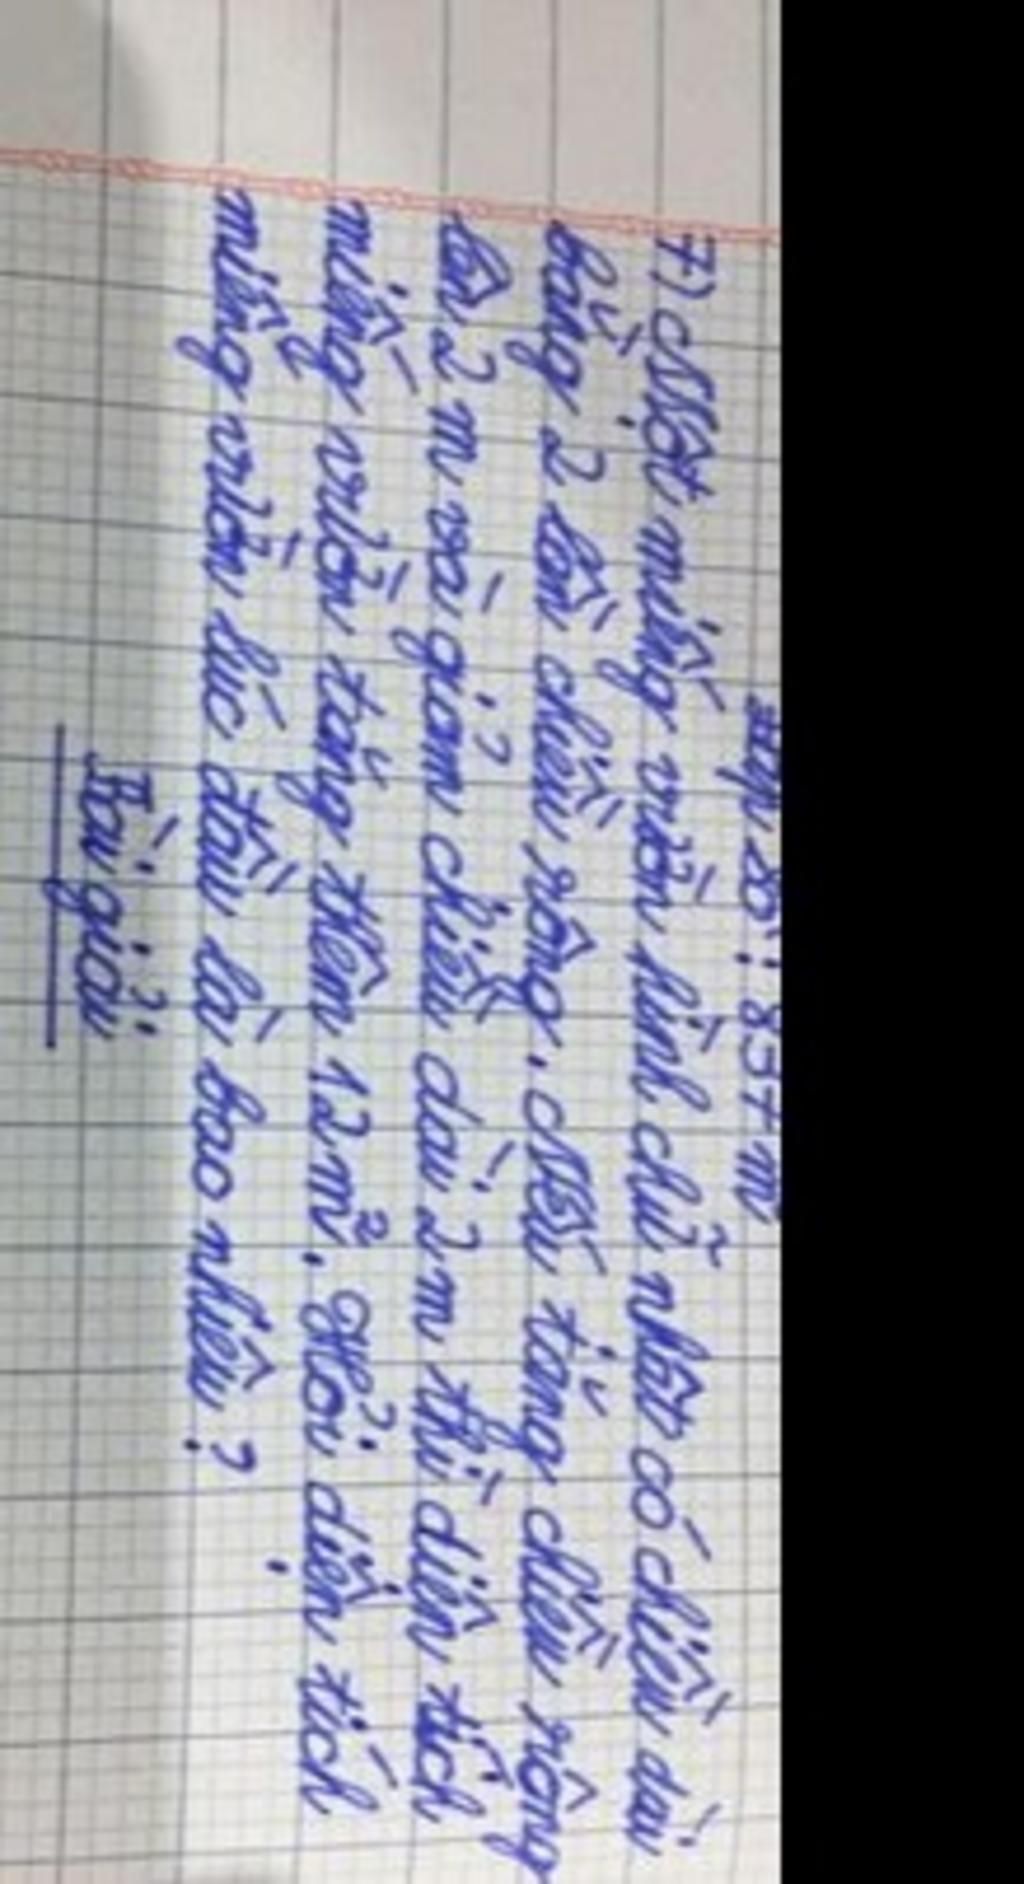 số: 857 m
7) Một miếng vườn hình chữ nhật có chiều dài
bằng 2 lần chiều rộng. Nếu tăng chiều rộng
lên 2 m và giảm chiều dài 2 m thì diện tích
miếng vườn tăng thêm 12 m². Hỏi diện tích
miếng vườn lúc đầu là bao nhiêu?
Bài giải